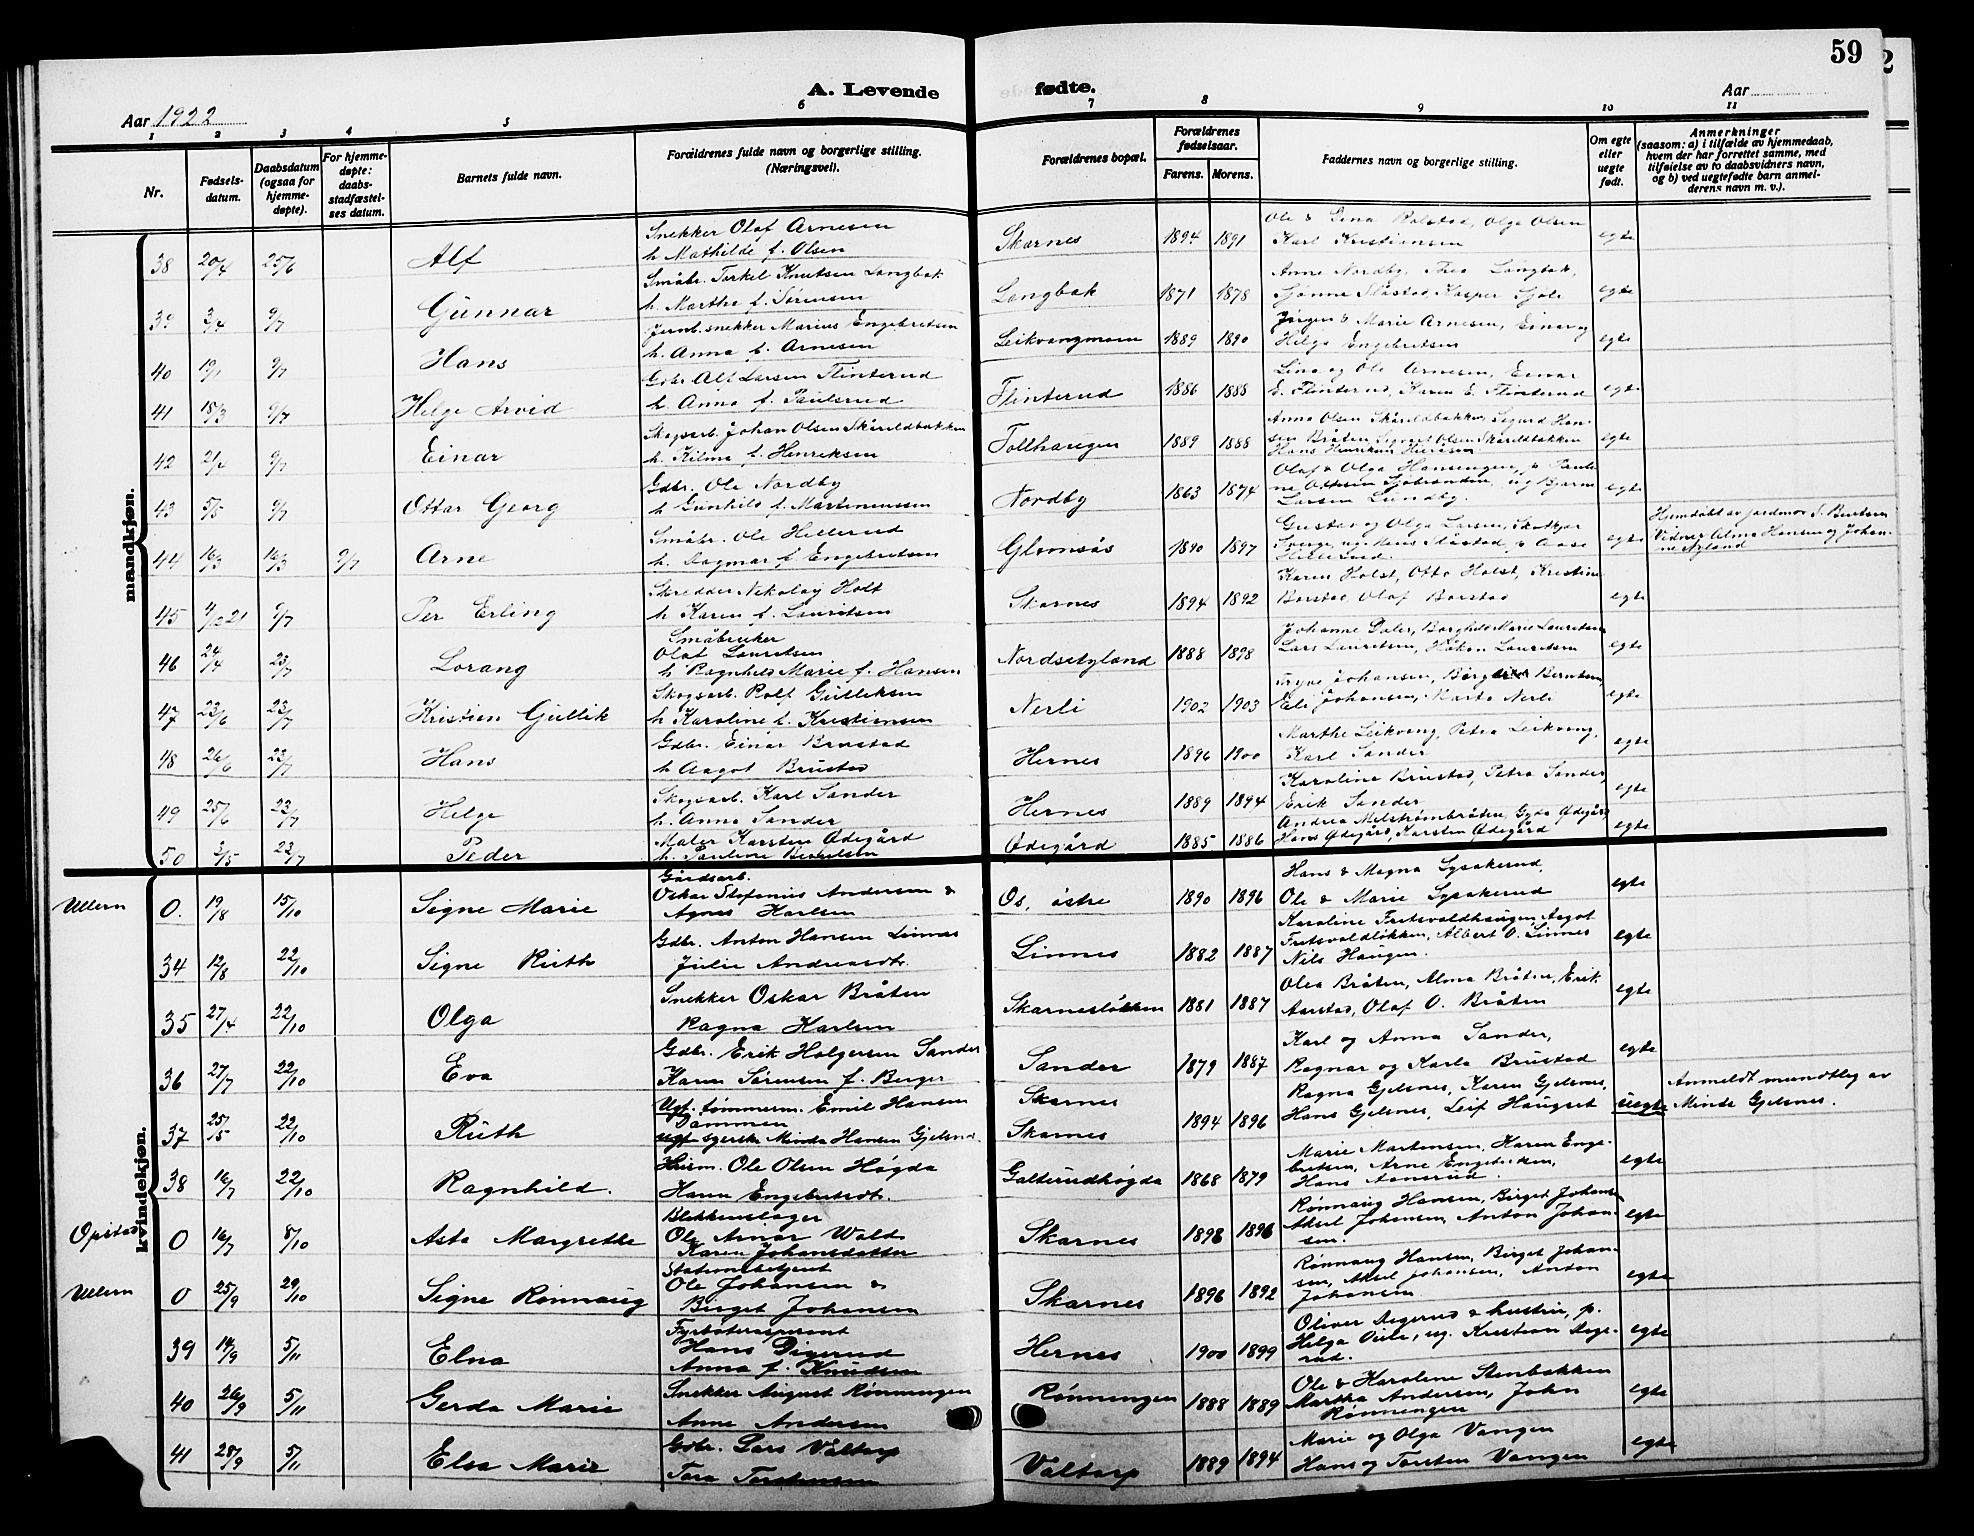 59
A. Levende fødte.
Aar 1922
Aar
1 2 3 4 5 6 7 8 9 10 11
Nr.
Fødsels-datum.
Daabsdatum (ogsaa for hjemme-døpte).
For hjemme-døpte: daabs-stadfæstel-ses datum.
Barnets fulde navn.
Forældrenes fulde navn og borgerlige stilling. (Næringsvei).
Forældrenes bopæl.
Forældrenes fødselsaar.
Farens. Morens.
Faddernes navn og borgerlige stilling.
Om egte eller uegte født.
Anmerkninger
(saasom: a) i tilfælde av hjemmedaab,
hvem der har forrettet samme, med
tilføielse av to daabsvidners navn,
og b) ved uegtefødte barn anmel-
derens navn m. v.).
mandkjøn.
38 20/4 25/6 Alf Snekker Olaf Arnesen h. Mathilde f. Olsen Skarnes 1894 1891 Ole & Lina Rolstad, Olga Olsen Karl Kristiansen egte
39 3/4 9/7 Gunnar Småbr. Terkel Knutsen Langbak h. Marthe f. Sørensen Langbak 1871 1878 Anne Nordby, Thea Langbak, egte
40 19/1 9/7 Hans Jernb. snekker Marius Engebretsen h. Anna f. Arnesen Leikvangmoen 1889 1890 Jørgen & Marie Arnesen, Einar og Helga Engebretsen egte
41 15/3 9/7 Helge Arvid Gdbr. Alf Larsen Flinterud h. Anna f. Paulsrud Flinterud 1886 1888 Lina og Ole Arnesen, Einar E. Flinterud, Karen E. Flinterud egte
42 2/4 9/7 Einar Skogsarb. Johan Olsen Skårildbakken h. Hilma f. Henriksen Tollhaugen 1889 1888 Anna Olsen Skårildbakken, Sigurd Hansen Bråten, Sigvart Olsen Skårildbakken egte
43 5/5 9/7 Ottar Georg Gdbr. Ole Nordby h. Gunhild f. Martinussen Nordby 1863 1874 Larsen Lundby. egte
44 16/3 16/3 9/7 Arne Småbr. Ole Hellerud h. Dagmar f. Engebretsen Glomsås 1890 1897 Gustav og Olga Larsen, egte Hjemdøbt av jordmor S. Berntsen Vidner Alma Hansen og Johanne Nyland
45 4/12 21 9/7 Per Erling Skredder Nikolay Holt h. Karen f. Lauritsen Skarnes 1894 1892 Karen Holst, Otto Holst, Kristine Borstad, Olaf Borstad egte
46 24/4 23/7 Lorang Småbruker Olaf Lauritsen h. Ragnhild Marie f. Hansen Nordsetyland 1888 1898 Johanne Daler, Borghild Marie Lauritsen Lars Lauritsen, Håkon Lauritsen egte
47 23/6 23/7 Kristian Gullik Skogsarb. Rolf Gulleksen h. Karoline f. Kristiansen Nerli 1902 1903 Johansen, Berntsen, Johansen, Marta Nerli egte
48 26/6 23/7 Hans Gdbr. Einar Brustad h. Aagot Brustad Hernes 1896 1900 Marthe Leikvang, Petra Leikvang, Karl Sander egte
49 25/6 23/7 Helge Skogsarb. Karl Sander h. Anna Sander Hernes 1889 1894 Karoline Brustad, Petra Sander, Erik Sander egte
50 3/5 23/7 Peder Maler Karsten Ødegård h. Pauline Berntsen Ødegård 1885 1886 Andrea Melstrømbråten, Gyda Ødegård Hans Ødegård, Karsten Ødegård egte
kvindekjøn.
Ullern 0. 19/8 15/10 Signe Marie Gårdsarb. Oskar Stefanus Andersen & Agnes Karlsen Os, østre 1890 1896 Hans & Magna Sysakerud, Ole & Marie Sysakerud egte
34 12/8 22/10 Signe Ruth Gdbr. Anton Hansen Linnes Julie Andreasdt. Linnes 1882 1887 Karoline Fritsvoldhaugen, Aagot Fritsvoldløkken, Albert O. Linnes Nils Haugen. egte
35 27/4 22/10 Olga Snekker Oskar Bråten Ragna Karlsen Skarnesløkken 1881 1887 Olea Bråten, Alma Bråten, Erik Aarstad, Olaf O. Bråten egte
36 27/7 22/10 Eva Gdbr. Erik Holgersen Sander Karen Sørensen f. Berger Sander 1879 1887 Karl og Anna Sander, Ragnar og Karla Brustad egte
37 25/5 22/10 Ruth Ugt. tømmerm. Emil Hansen Dammen ugt syerske Minda Hansen Gjelsnes. Skarnes Skarnes 1894 1896 Ragna Gjelsnes, Karen Gjelsnes, Hans Gjelsnes, Leif Haugset uegte Anmeldt mundtleg av Minda Gjelsnes.
38 16/7 22/10 Ragnhild. Ole Olsen Høgda Karen Engebretsdt. Galterudhøgda 1868 1879 Marie Martensen, Karen Engebretsen, Arne Engebretsen, Hans Aamerud. egte
Opstad 0 16/7 8/10 Asta Margrethe Blikkenslager Ole Ainar Wold Karen Johansdatter Skarnes 1898 1896 Rønnaug Hansen, Birget Johansen Aksel Johansen, Anton Johansen. egte
Ullern 0 25/9 29/10 Signe Rønnaug Stationsbetjent Ole Johansen & Birget Johansen Skarnes 1896 1892 Rønnaug Hansen, Birget Johansen, Aksel Johansen, Anton Johansen egte
39 14/9 5/11 Elna Fyrbøteraspirant Hans Digerud Anna f. Knudsen Hernes 1900 1899 Oliver Digerud & hustru, p. Helga Oule, ug. Kristian Digerud. egte
40 26/9 5/11 Gerda Marie Snekker August Rønningen Anne Andersen Rønningen 1888 1889 Ole & Karoline Stenbakken Martha Andersen, John Rønningen egte
41 28/9 5/11 Elsa Marie Gdbr. Lars Våltorp Tora Torstensen Våltorp 1889 1894 Marie og Olga Vangen Hans og Torsten Vangen egte